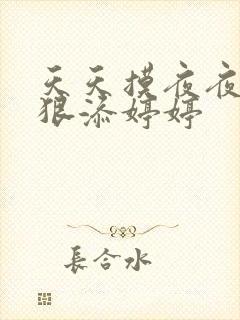 天天摸夜夜
狠添婷婷
長合水